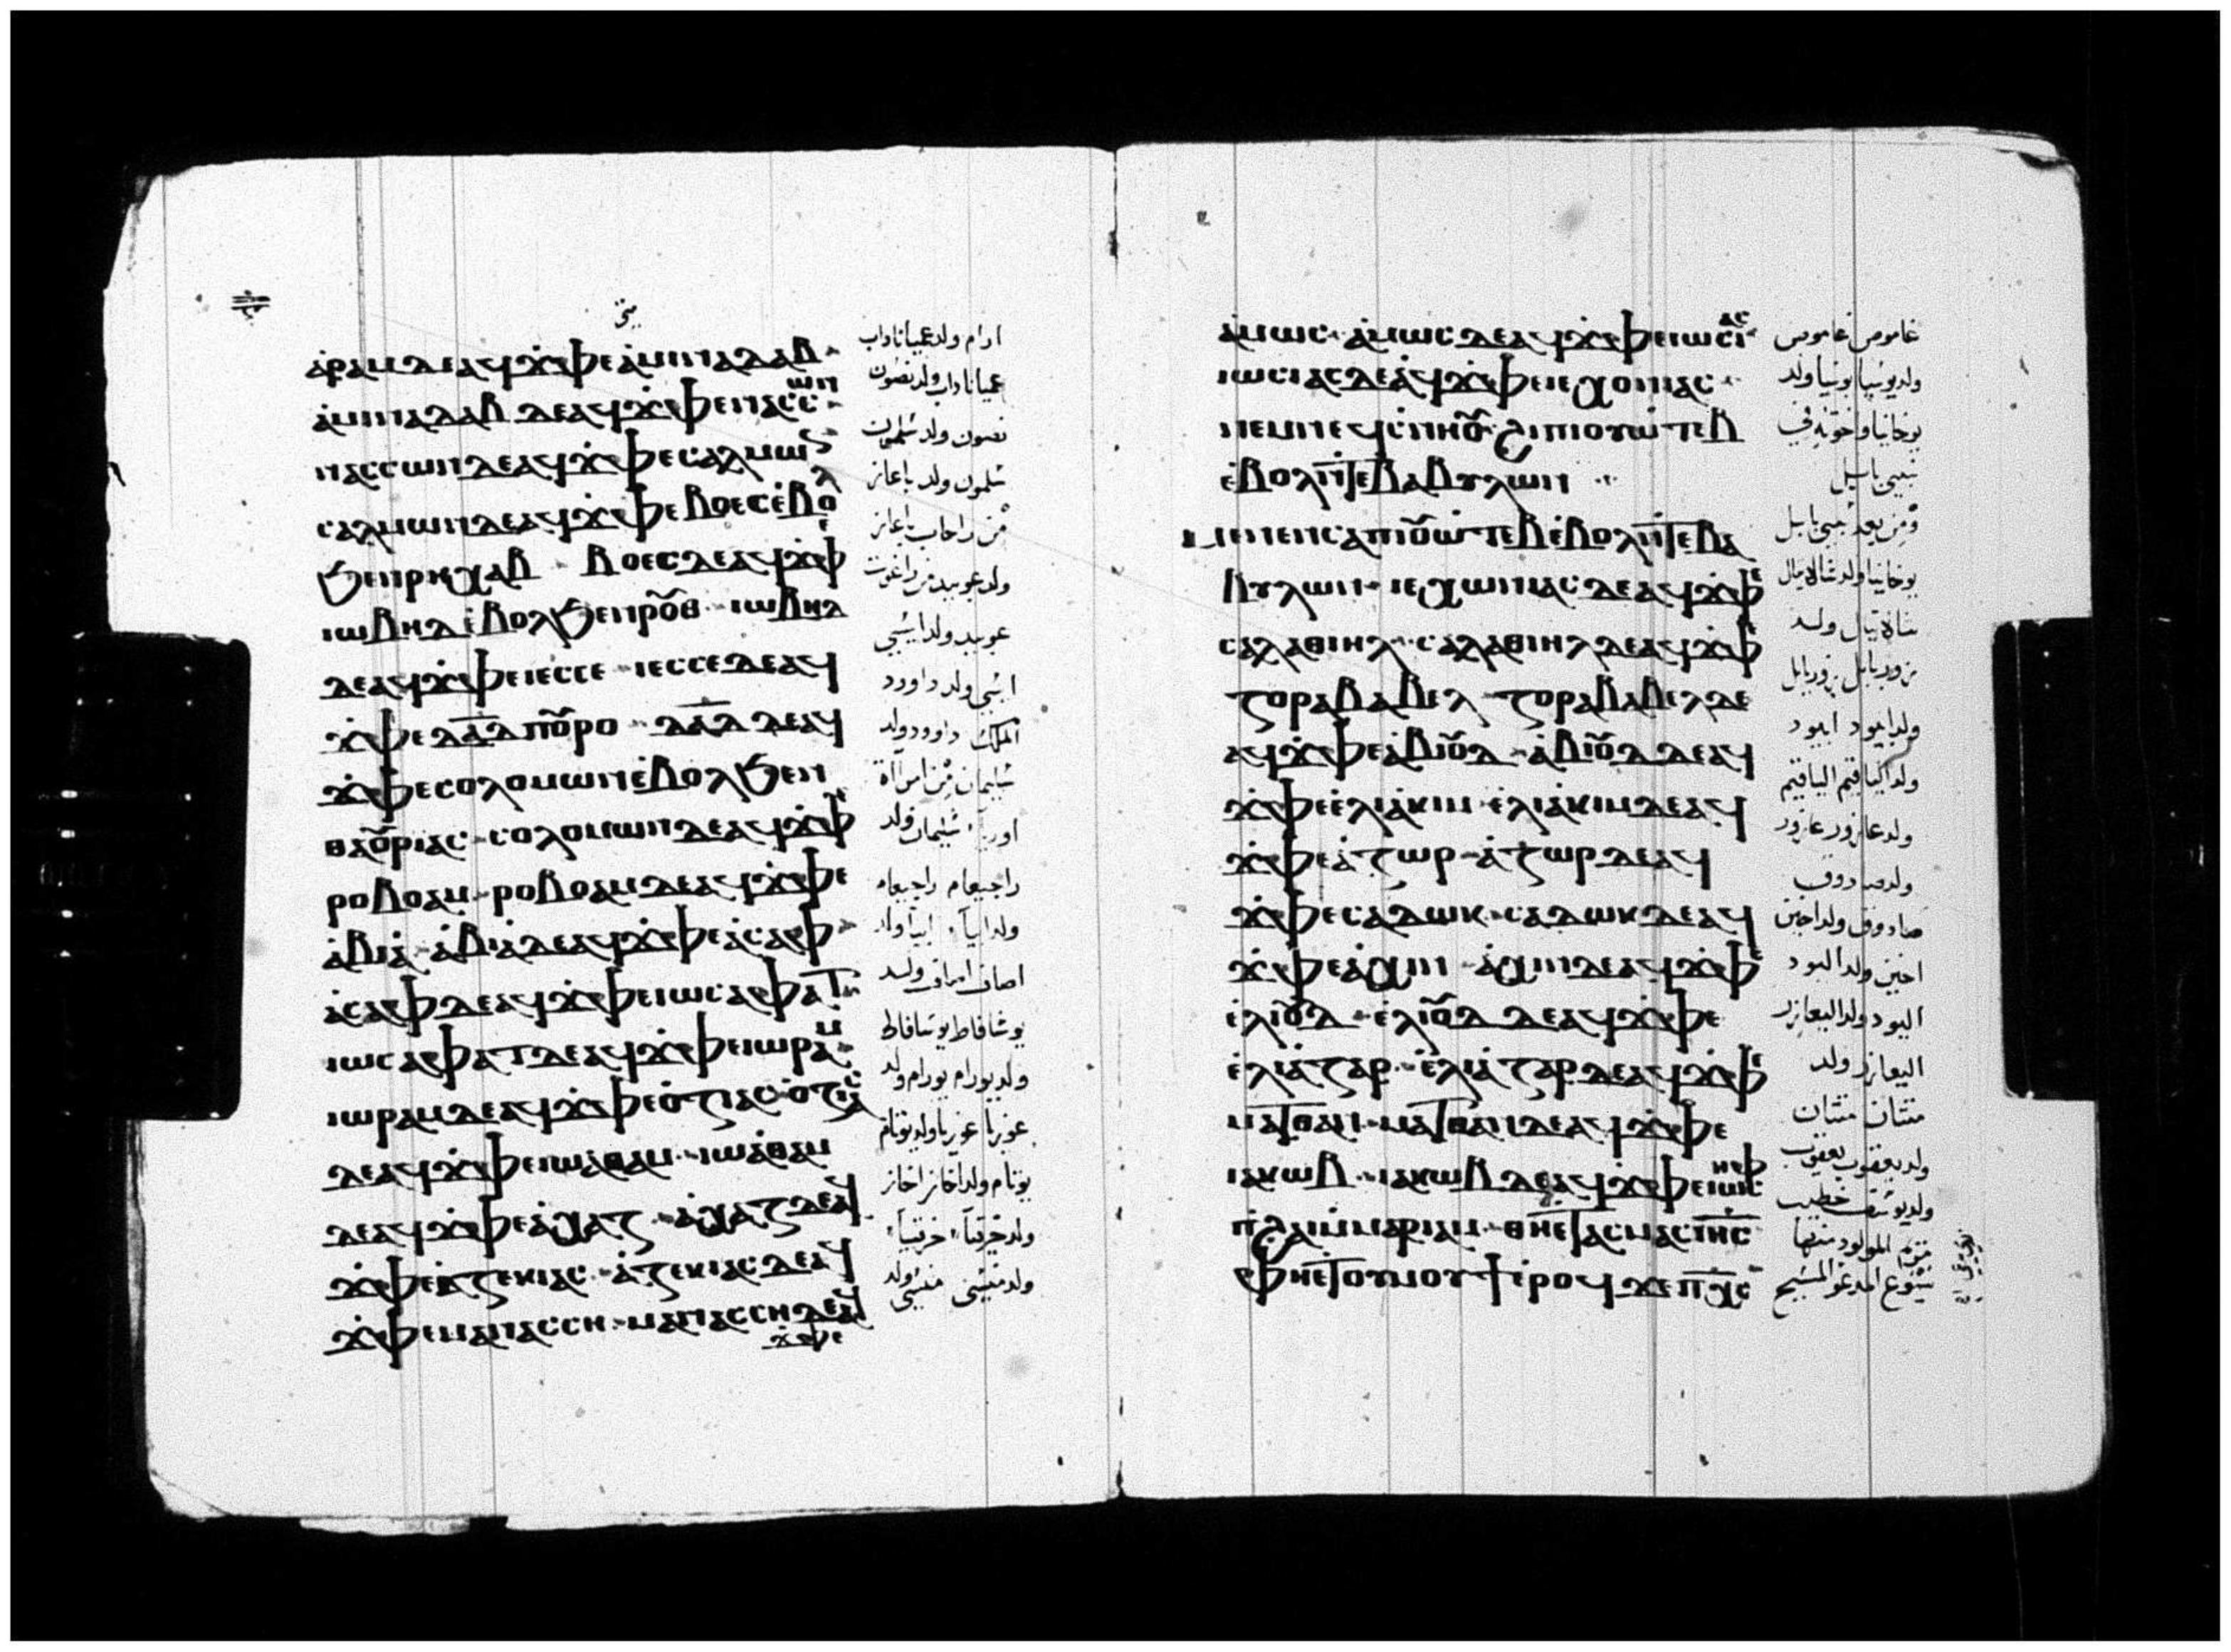 متى
ⲁ̀ⲣⲁⲙ ⲇⲉ ⲁϥϫ̀ⲫⲉ ⲁ̀ⲙⲓⲛⲁⲇⲁⲃ
ⲁ̀ⲙⲓⲛⲁⲇⲁⲃ ⲇⲉ ⲁϥϫ̀ⲫⲉ ⲛⲁⲥⲥⲱⲛ
ⲛⲁⲥⲥⲱⲛ ⲇⲉ ⲁϥϫ̀ⲫⲉ ⲥⲁⲗⲙⲱⲛ
ⲥⲁⲗⲙⲱⲛ ⲇⲉ ⲁϥϫ̀ⲫⲉ ⲃⲟⲉⲥ ⲉ̀ⲃⲟⲗ
ϧⲉⲛ ⲣⲏⲭⲁⲃ ⲃⲟⲉⲥ ⲇⲉ ⲁϥϫ̀ⲫⲉ
ⲓⲱⲃⲏⲇ ⲉ̀ⲃⲟⲗ ϧⲉⲛ ⲣⲟⲩⲑ ⲓⲱⲃⲏⲇ
ⲇⲉ ⲁϥϫ̀ⲫⲉ ⲓⲉⲥⲥⲉ ⲓⲉⲥⲥⲉ ⲇⲉ ⲁϥ
ϫ̀ⲫⲉ ⲇⲁ̅ⲇ ⲡⲟⲩⲣⲟ ⲇⲁ̅ⲇ ⲇⲉ ⲁϥ
ϫ̀ⲫⲉ ⲥⲟⲗⲟⲙⲱⲛ ⲉ̀ⲃⲟⲗ ϧⲉⲛ
ⲑⲁⲟⲩⲣⲓⲁⲥ ⲥⲟⲗⲟⲙⲱⲛ ⲇⲉ ⲁϥϫ̀ⲫⲉ
ⲣⲟⲃⲟⲁⲙ ⲣⲟⲃⲟⲁⲙ ⲇⲉ ⲁϥϫ̀ⲫⲉ
ⲁ̀ⲃⲓⲁ̀ ⲁ̀ⲃⲓⲁ̀ ⲇⲉ ⲁϥϫ̀ⲫⲉ ⲁ̀ⲥⲁⲫ
ⲁ̀ⲥⲁⲫ ⲇⲉ ⲁϥϫ̀ⲫⲉ ⲓⲱⲥⲁⲫⲁⲧ
ⲓⲱⲥⲁⲫⲁⲧ ⲇⲉ ⲁϥϫ̀ⲫⲉ ⲓⲱⲣⲁⲙ
ⲓⲱⲣⲁⲙ ⲇⲉ ⲁϥϫ̀ⲫⲉ ⲟ̀ⲍⲓⲁⲥ ⲟ̀ⲍⲓⲁⲥ
ⲇⲉ ⲁϥϫ̀ⲫⲉ ⲓⲱⲁ̀ⲑⲁⲙ ⲓⲱⲁ̀ⲑⲁⲙ
ⲇⲉ ⲁϥϫ̀ⲫⲉ ⲁ̀ⲭⲁⲍ ⲁ̀ⲭⲁⲍ ⲇⲉ ⲁϥ
ϫ̀ⲫⲉ ⲉ̀ⲍⲉⲕⲓⲁⲥ ⲁ̀ⲍⲉⲕⲓⲁⲥ ⲇⲉ ⲁϥ
ϫ̀ⲫⲉ ⲙⲁⲛⲁⲥⲥⲏ ⲙⲁⲛⲁⲥⲥⲏ ⲇⲉ ⲁϥ
ϫ̀ⲫⲉ
ارام ولد عميناداب
عميناداب ولد نصون
نصون ولد شلمون
شلمون ولد باعاز
من راحاب باعاز
ولد عوبيد من راعوت
عوبيد ولد ايشي
ايشي ولد داوود
الملك داوود ولد
شليمان من امراة
اوريا شليمان ولد
راحبعام راحبعام
ولد ابيا ابيا ولد
اصاف اصاف ولد
يوشافاط يوشافاط
ولد يورام يورام ولد
عوزيا عوزيا ولد يوتام
يوتام ولد اخاز اخاز
ولد حزقيا حزقيا
ولد منشي منشي ولد
ⲁ̀ⲙⲱⲥ ⲁ̀ⲙⲱⲥ ⲇⲉ ⲁϥϫ̀ⲫⲉ ⲓⲱⲥⲓⲁⲥ
ⲓⲱⲥⲓⲁⲥ ⲇⲉ ⲁ̀ϥϫ̀ⲫⲉ ⲓⲉⲭⲟⲛⲓⲁⲥ
ⲛⲉⲙ ⲛⲉϥⲥ̀ⲛⲏⲟⲩ ϩⲓ ⲡⲓⲟⲩⲱ̀ⲧⲉⲃ
ⲉ̀ⲃⲟⲗ ⲛ̀ⲧⲉ ⲃⲁⲃⲩⲗⲱⲛ
ⲙⲉⲛⲉⲛⲥⲁ ⲡⲓⲟⲩⲱ̀ⲧⲉⲃ ⲉ̀ⲃⲟⲗ ⲛ̀ⲧⲉ ⲃⲁ
ⲃⲩⲗⲱⲛ ⲓⲉⲭⲱⲛⲓⲁⲥ ⲇⲉ ⲁϥϫ̀ⲫⲉ
ⲥⲁⲗⲁⲑⲓⲏⲗ ⲥⲁⲗⲁⲑⲓⲏⲗ ⲇⲉ ⲁϥϫ̀ⲫⲉ
ⲍⲟⲣⲁⲃⲁⲃⲉⲗ ⲍⲟⲣⲁⲃⲁⲃⲉⲗ ⲇⲉ
ⲁϥϫ̀ⲫⲉ ⲁ̀ⲃⲓⲟⲩⲇ ⲁ̀ⲃⲓⲟⲩⲇ ⲇⲉ ⲁϥ
ϫ̀ⲫⲉ ⲉ̀ⲗⲓⲁ̀ⲕⲓⲙ ⲉ̀ⲗⲓⲁ̀ⲕⲓⲙ ⲇⲉ ⲁϥ
ϫ̀ⲫⲉ ⲁ̀ⲍⲱⲣ ⲁ̀ⲍⲱⲣ ⲇⲉ ⲁϥ
ϫ̀ⲫⲉ ⲥⲁⲇⲱⲕ ⲥⲁⲇⲱⲕ ⲇⲉ ⲁϥ
ϫ̀ⲫⲉ ⲁ̀ⲭⲓⲛ ⲁ̀ⲭⲓⲛ ⲇⲉ ⲁϥϫ̀ⲫⲉ
ⲉ̀ⲗⲓⲟⲩⲇ ⲉ̀ⲗⲓⲟⲩⲇ ⲇⲉ ⲁϥϫ̀ⲫⲉ
ⲉ̀ⲗⲓⲁ̀ⲍⲁⲣ ⲉ̀ⲗⲓⲁ̀ⲍⲁⲣ ⲇⲉ ⲁϥϫ̀ⲫⲉ
ⲙⲁⲧⲑⲁⲛ ⲙⲁⲧⲑⲁⲛ ⲇⲉ ⲁϥϫ̀ⲫⲉ
ⲓⲁⲕⲱⲃ ⲓⲁⲕⲱⲃ ⲇⲉ ⲁϥϫ̀ⲫⲉ ⲓⲱⲥⲏⲫ
ⲡ̀ϩⲁⲓ ⲙ̀ⲙⲁⲣⲓⲁⲙ ⲑⲏⲉⲧⲁⲥⲙⲁⲥ ⲓⲏⲥ
ⲫⲏⲉⲧⲟⲩⲙⲟⲩϯ ⲉ̀ⲣⲟϥ ϫⲉ ⲡⲭⲥ
غاموص غاموص
ولد يوشيا يوشيا ولد
يوخانيا واخوته في
سبي بابيل
ومن بعد سبي بابل
يوخانيا ولد شالاتيال
شالاتيال ولد
زوربابل زوربابل
ولد ابيود ابيود
ولد الياقيم الياقيم
ولد عازور عازور
ولد صادوق
صادوق ولد اخين
اخين ولد اليود
اليود ولد اليعازر
اليعازر ولد
متتان متتان
ولد يعقوب يعقوب
ولد يوسف خطيب
مريم المولود منها
يسوع المدعو المسيح